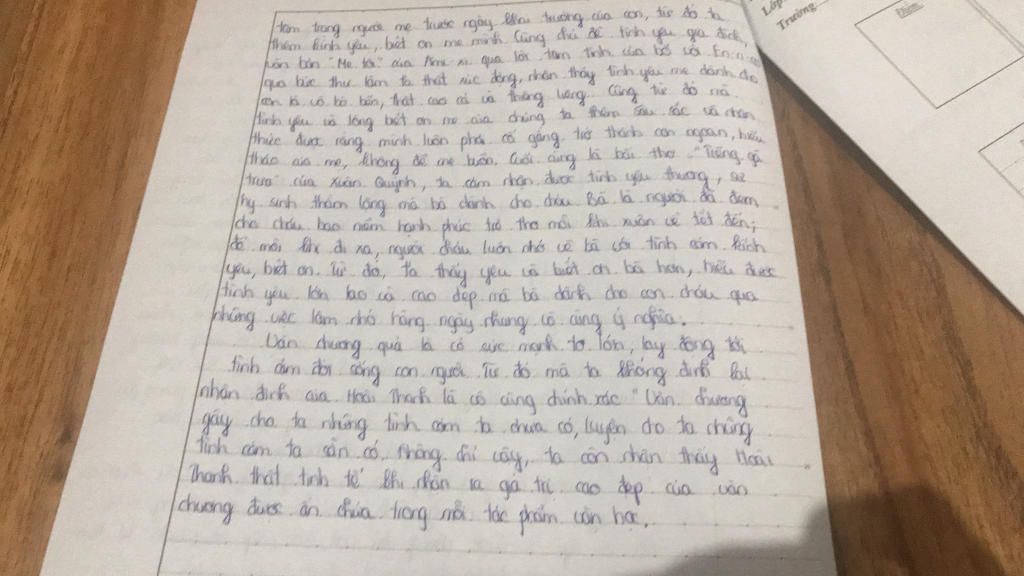 tâm trạng người mẹ trước ngày khai trường của con, từ đó ta
thêm kính yêu, biết ơn mẹ mình. Cùng chủ đề tình yêu gia đình,
văn bản "Mẹ tôi" của Ami-xi qua lời tâm tình của bố với En-ri-cô
qua bức thư làm ta thật xúc động, nhận thấy tình yêu mẹ dành cho
con là vô bờ bến, thật cao cả và thiêng liêng. Cũng từ đó mà
tình yêu và lòng biết ơn mẹ của chúng ta thêm sâu sắc và nhận
thức được rằng mình luôn phải cố gắng trở thành con ngoan, hiếu
thảo của mẹ, không để mẹ buồn. Cuối cùng là bài thơ "Tiếng gà
trưa" của Xuân Quỳnh, ta cảm nhận được tình yêu thương, sự
hy sinh thầm lặng mà bà dành cho cháu. Bà là người đã đem
cho cháu bao niềm hạnh phúc trẻ thơ mỗi khi xuân về tết đến;
để mỗi khi đi xa, người cháu luôn nhớ về bà với tình cảm kính
yêu, biết ơn. Từ đó, ta thấy yêu và biết ơn bà hơn, hiểu được
tình yêu lớn lao và cao đẹp mà bà dành cho con cháu qua
những việc làm nhỏ hàng ngày nhưng vô cùng ý nghĩa.
Văn chương quả là có sức mạnh to lớn, lay động tới
tình cảm đời sống con người. Từ đó mà ta khẳng định lại
nhận định của Hoài Thanh là vô cùng chính xác "Văn chương
gây cho ta những tình cảm ta chưa có, luyện cho ta những
tình cảm ta sẵn có. Không chỉ vậy, ta còn nhận thấy Hoài
Thanh thật tinh tế khi nhận ra giá trị cao đẹp của văn
chương được ẩn chứa trong mỗi tác phẩm văn học.
Lớp
Trường
Điểm